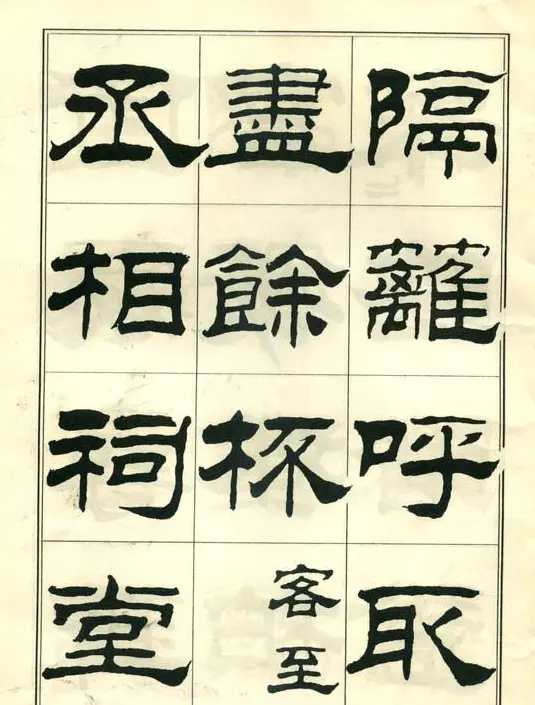 隔籬呼取
盡餘杯
客至
丞相祠堂